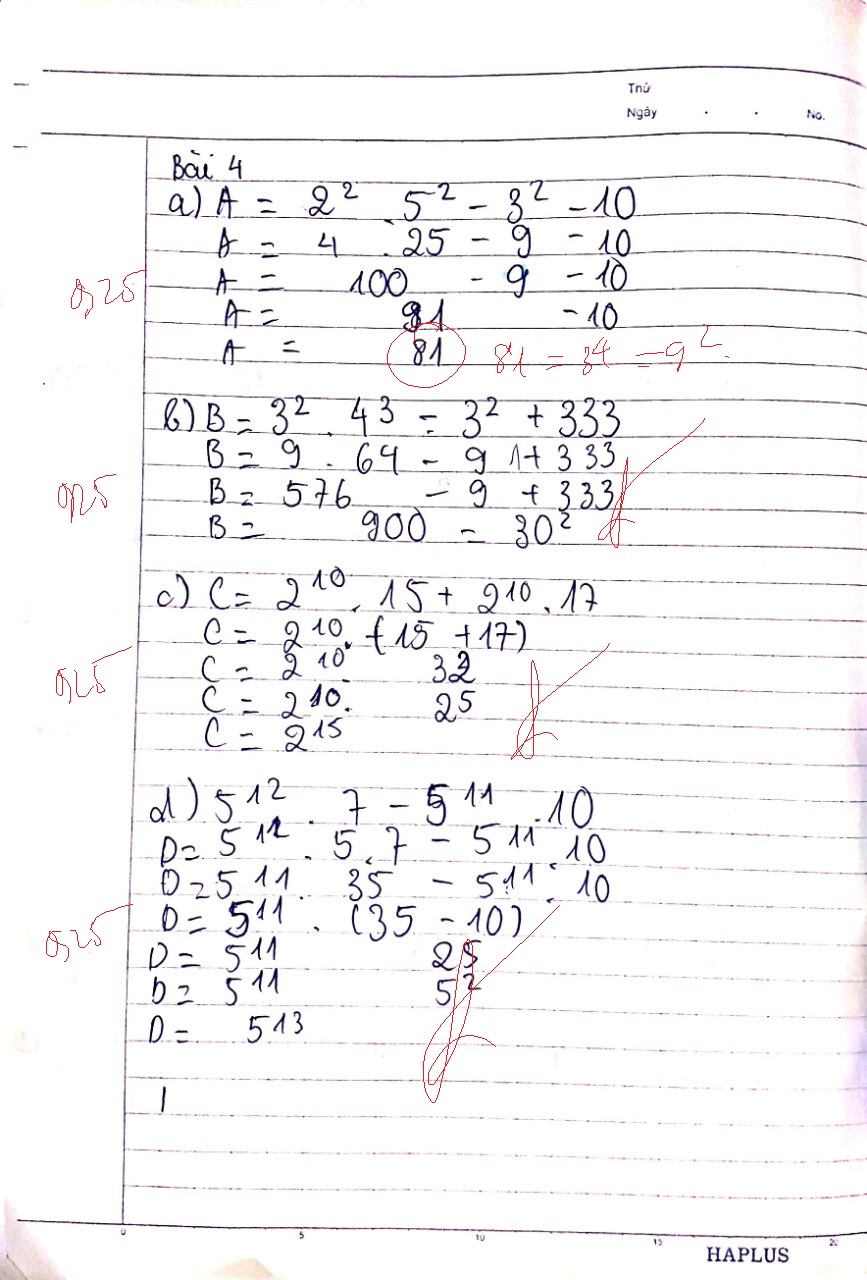 Thứ
Ngày . . No.
Bài 4
a) A = 2² . 5² - 3² - 10
A = 4 . 25 - 9 - 10
A = 100 - 9 - 10
0,25
A = 91 - 10
A = 81 81 = 3⁴ = 9².
b) B = 3² . 4³ - 3² + 333
B = 9 . 64 - 9 + 333
0,25 B = 576 - 9 + 333
B = 900 = 30²
c) C = 2¹⁰ . 15 + 2¹⁰ . 17
C = 2¹⁰ . (15 + 17)
0,25 C = 2¹⁰ . 32
C = 2¹⁰ . 2⁵
C = 2¹⁵
d) 5¹² . 7 - 5¹¹ . 10
D = 5¹¹ . 5 . 7 - 5¹¹ . 10
D = 5¹¹ . 35 - 5¹¹ . 10
0,25 D = 5¹¹ . (35 - 10)
D = 5¹¹ 25
D = 5¹¹ 5²
D = 5¹³
0 5 10 15 20
HAPLUS